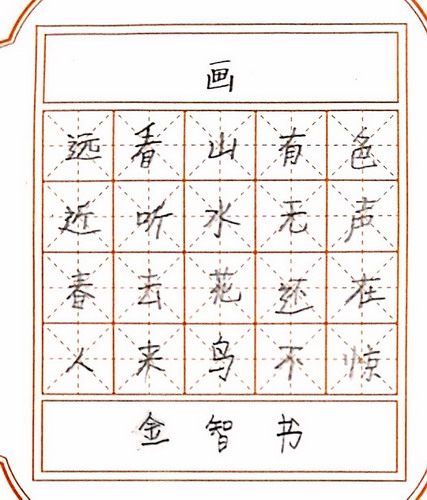 画
远看山有色
近听水无声
春去花还在
人来鸟不惊
金智书